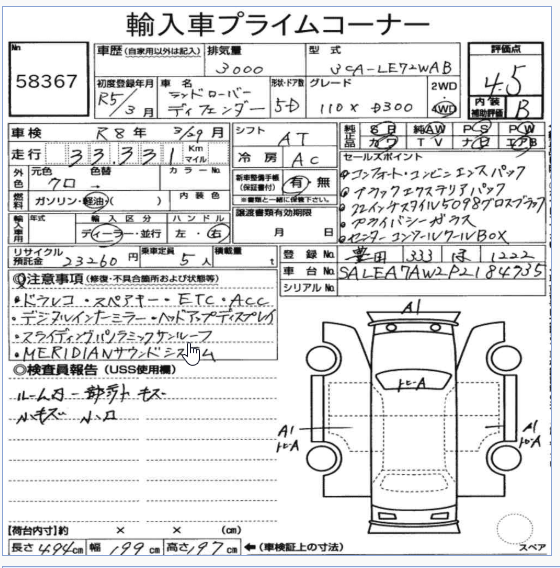 輸入車プライムコーナー
No 58367
車歴 (自家用以外は記入) 排気量 3000 型式 3CA-LE72WAB
評価点 4.5
内装補助評価 B
初度登録年月 R5/3月 車名 ランドローバー ディフェンダー 形状・ドア数 5-D グレード 110X D300 2WD・4WD
車検 R8年 3/29月 シフト AT
純正品 SR 純AW PS PW カワ TV ナビ エアB
走行 33,331 Km マイル 冷房 AC
セールスポイント
・コンフォート・コンビニエンスパック
・ブラックエクステリアパック
・22インチスタイル5098グロスブラック
・プライバシーガラス
・センターコンソールクールBOX
外色 元色 クロ → 色替 カラーNo.
新車整備手帳 (保証書付) 有・無
※書類と一緒に保管して下さい。
燃料 ガソリン・軽油・( ) 内装色
譲渡書類有効期限 月 日
輸入車用 年式 輸入区分 ディーラー・並行 ハンドル 左・右
リサイクル預託金 23260円 乗車定員 5人 積載量 t
登録No. 豊田 333 ほ 1222
車台No. SALEA7AW2P2184735
シリアルNo.
◎注意事項 (修復・不具合箇所および状態等)
・ドラレコ・スペアキー・ETC・ACC
・デジタルインナーミラー・ヘッドアップディスプレイ
・スライディングパノラミックサンルーフ
・MERIDIANサウンドシステム
◎検査員報告 (USS使用欄)
ルーム内一部汚キズ
小キズ 小凹
A1
トビA
A1
トビA
A1
トビA
【荷台内寸】約 × × (cm)
長さ 494cm 幅 199cm 高さ 197cm ←(車検証上の寸法)
スペア